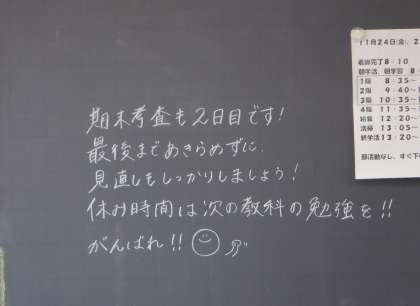 期末考査も2日目です!
最後まであきらめずに.
見直しもしっかりしましょう!
休み時間は次の教科の勉強を!!
がんばれ!!
11月24日(金),2
着席完了8:10
朝学活、朝学習 8
1限 8:35~
2限 9:40~1
3限 10:35~
4限 11:35~
給食 12:20~
清掃 13:05~
終学活13:20~
部活動なし、すぐ下